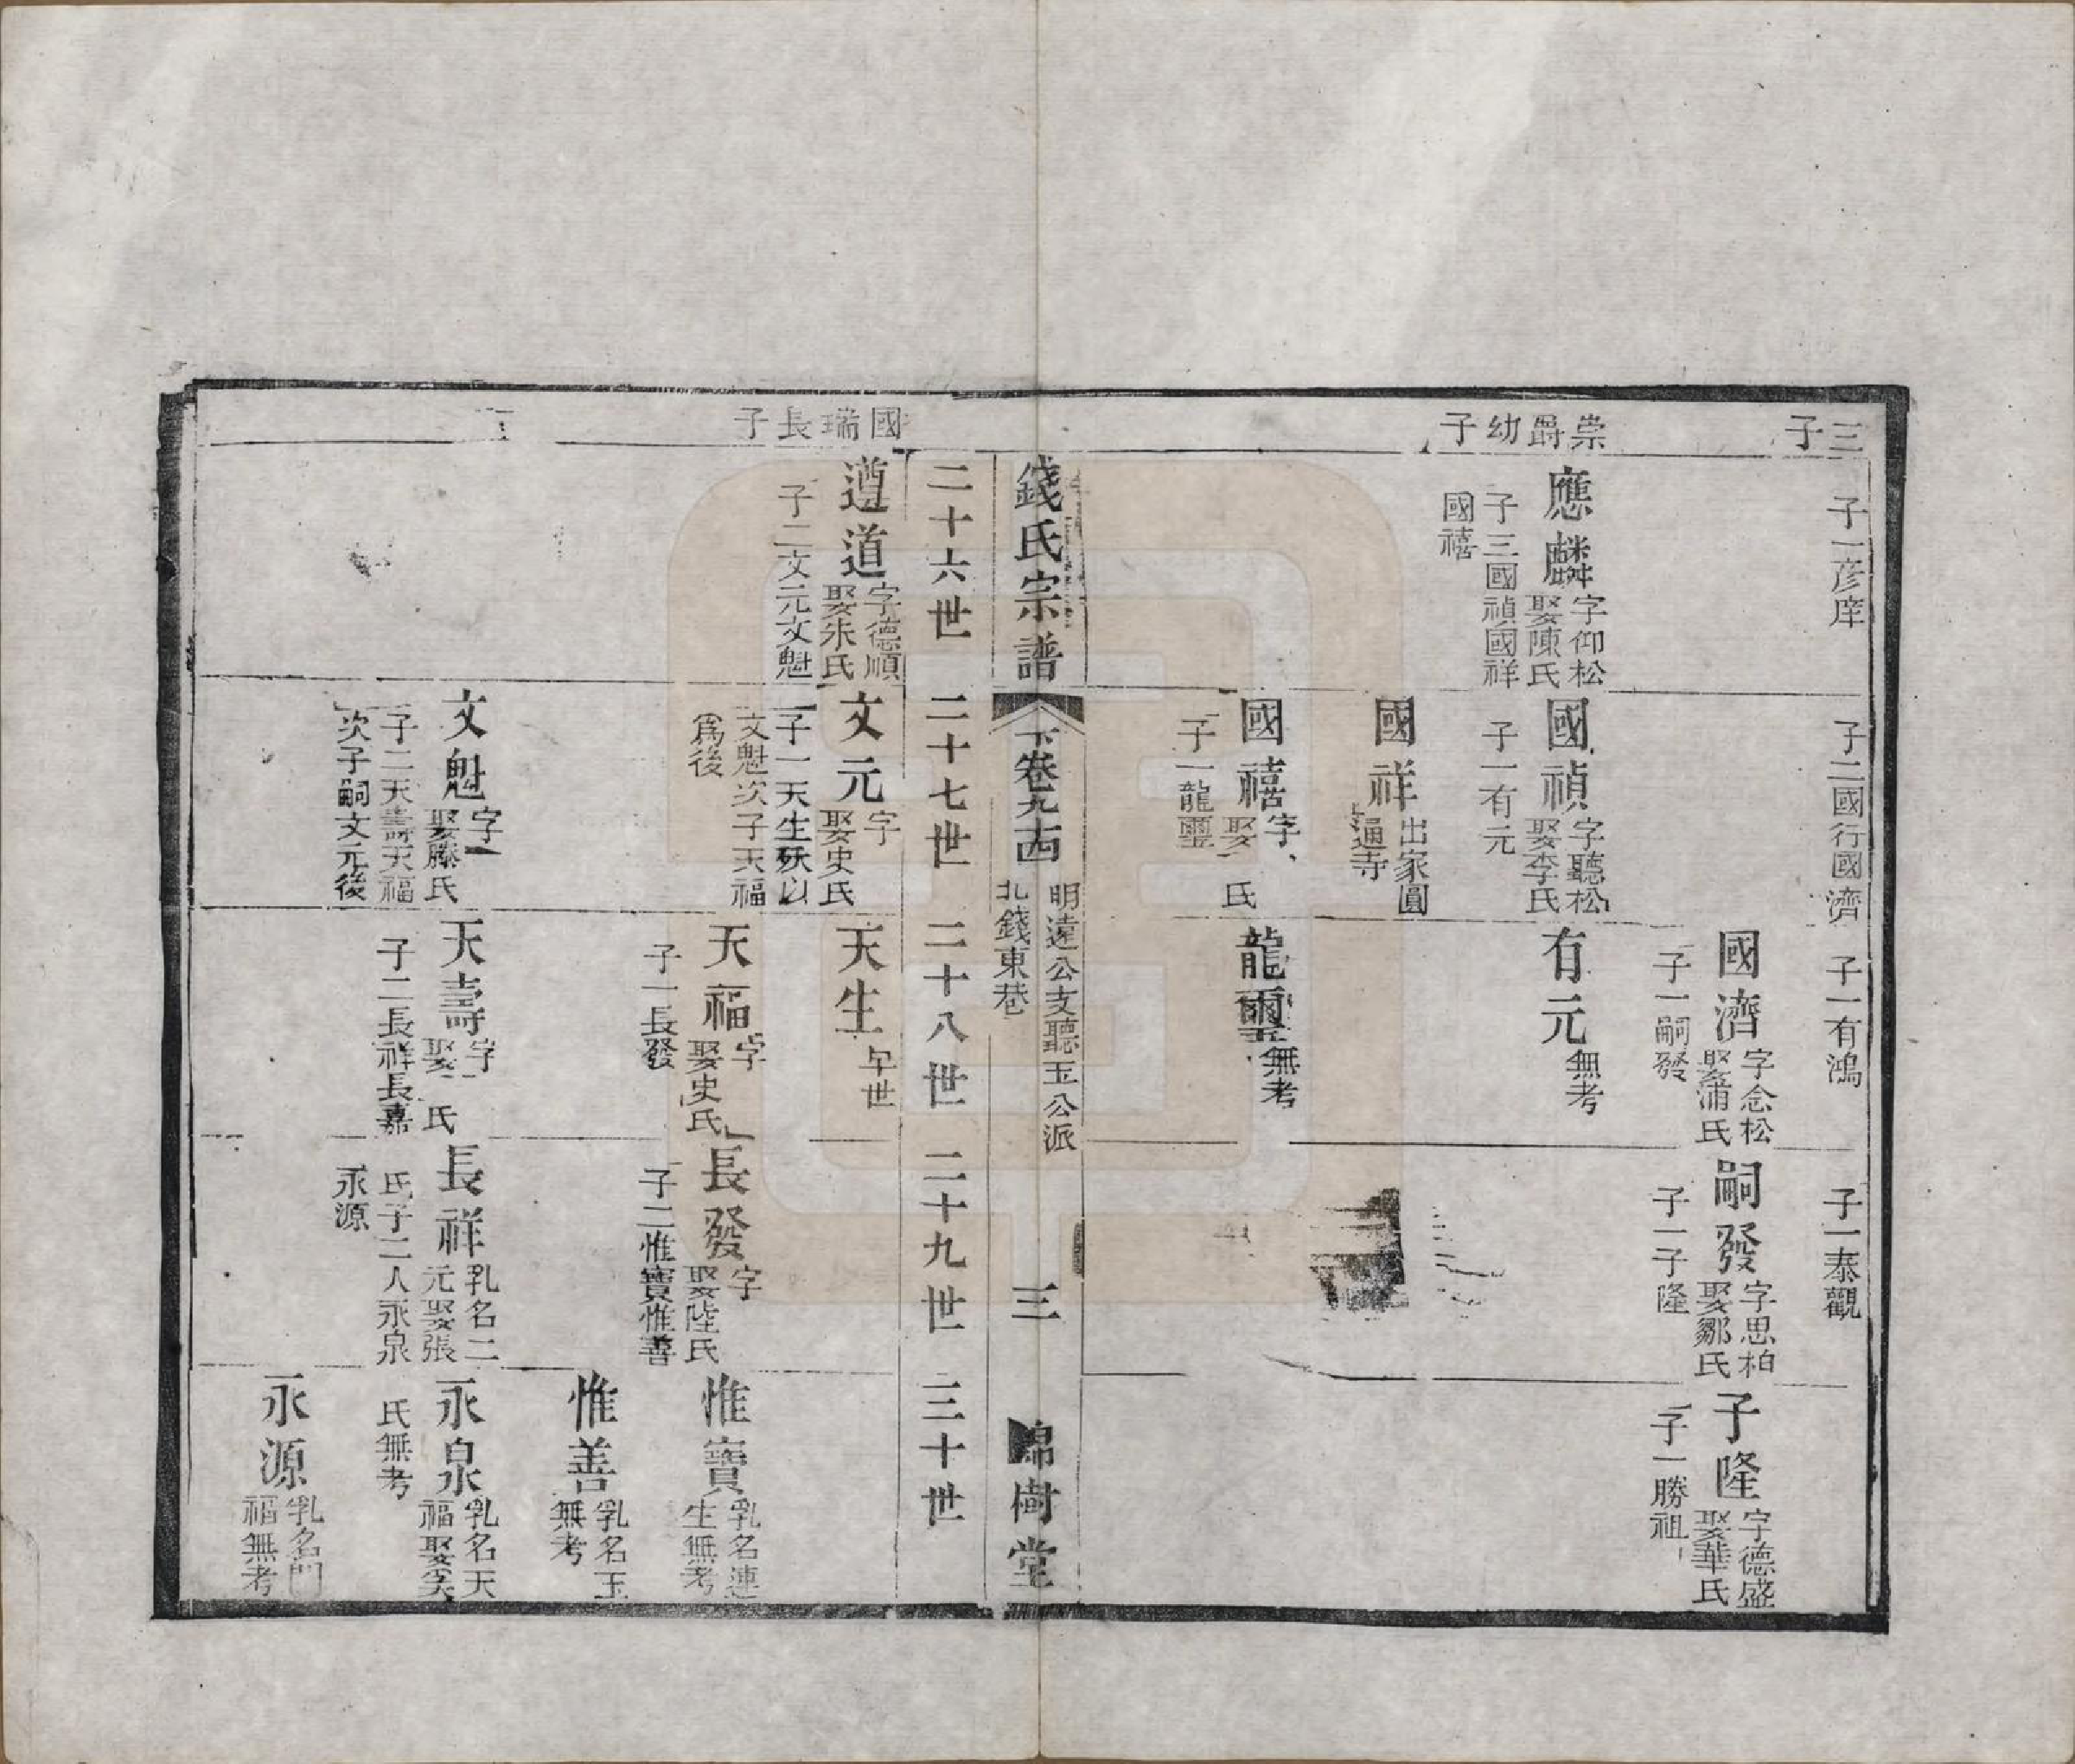 三子
子一彥庠
子二國行國濟
子一有鴻
子一泰觀
國濟 字念松
娶浦氏
子一嗣發
嗣發 字思柏
娶鄒氏
子一子隆
子隆 字德盛
娶華氏
子一勝祖
崇爵幼子
應麟 字仰松
娶陳氏
子三國禎國祥
國禧
國禎 字聽松
娶李氏
子一有元
有元 無考
國祥 出家圓
通寺
國禧 字
娶 氏
子一龍璽
龍璽 無考
錢氏宗譜
下卷九十四
明遠公支聽玉公派
北錢東巷
三
錦樹堂
二十六世 二十七世 二十八世 二十九世 三十世
國瑞長子
遵道 字德順
娶朱氏
子二文元文魁
文元 字
娶史氏
子一天生殀以
文魁次子天福
爲後
天生 早世
天福 字
娶史氏
子一長發
長發 字
娶陸氏
子二惟寶惟善
惟寶 乳名連
生無考
惟善 乳名玉
無考
文魁 字
娶滕氏
子二天壽天福
次子嗣文元後
天壽 字
娶 氏
子二長祥長嘉
長祥 乳名二
元娶張
氏子二人永泉
永源
永泉 乳名天
福娶吴
氏無考
永源 乳名門
福無考